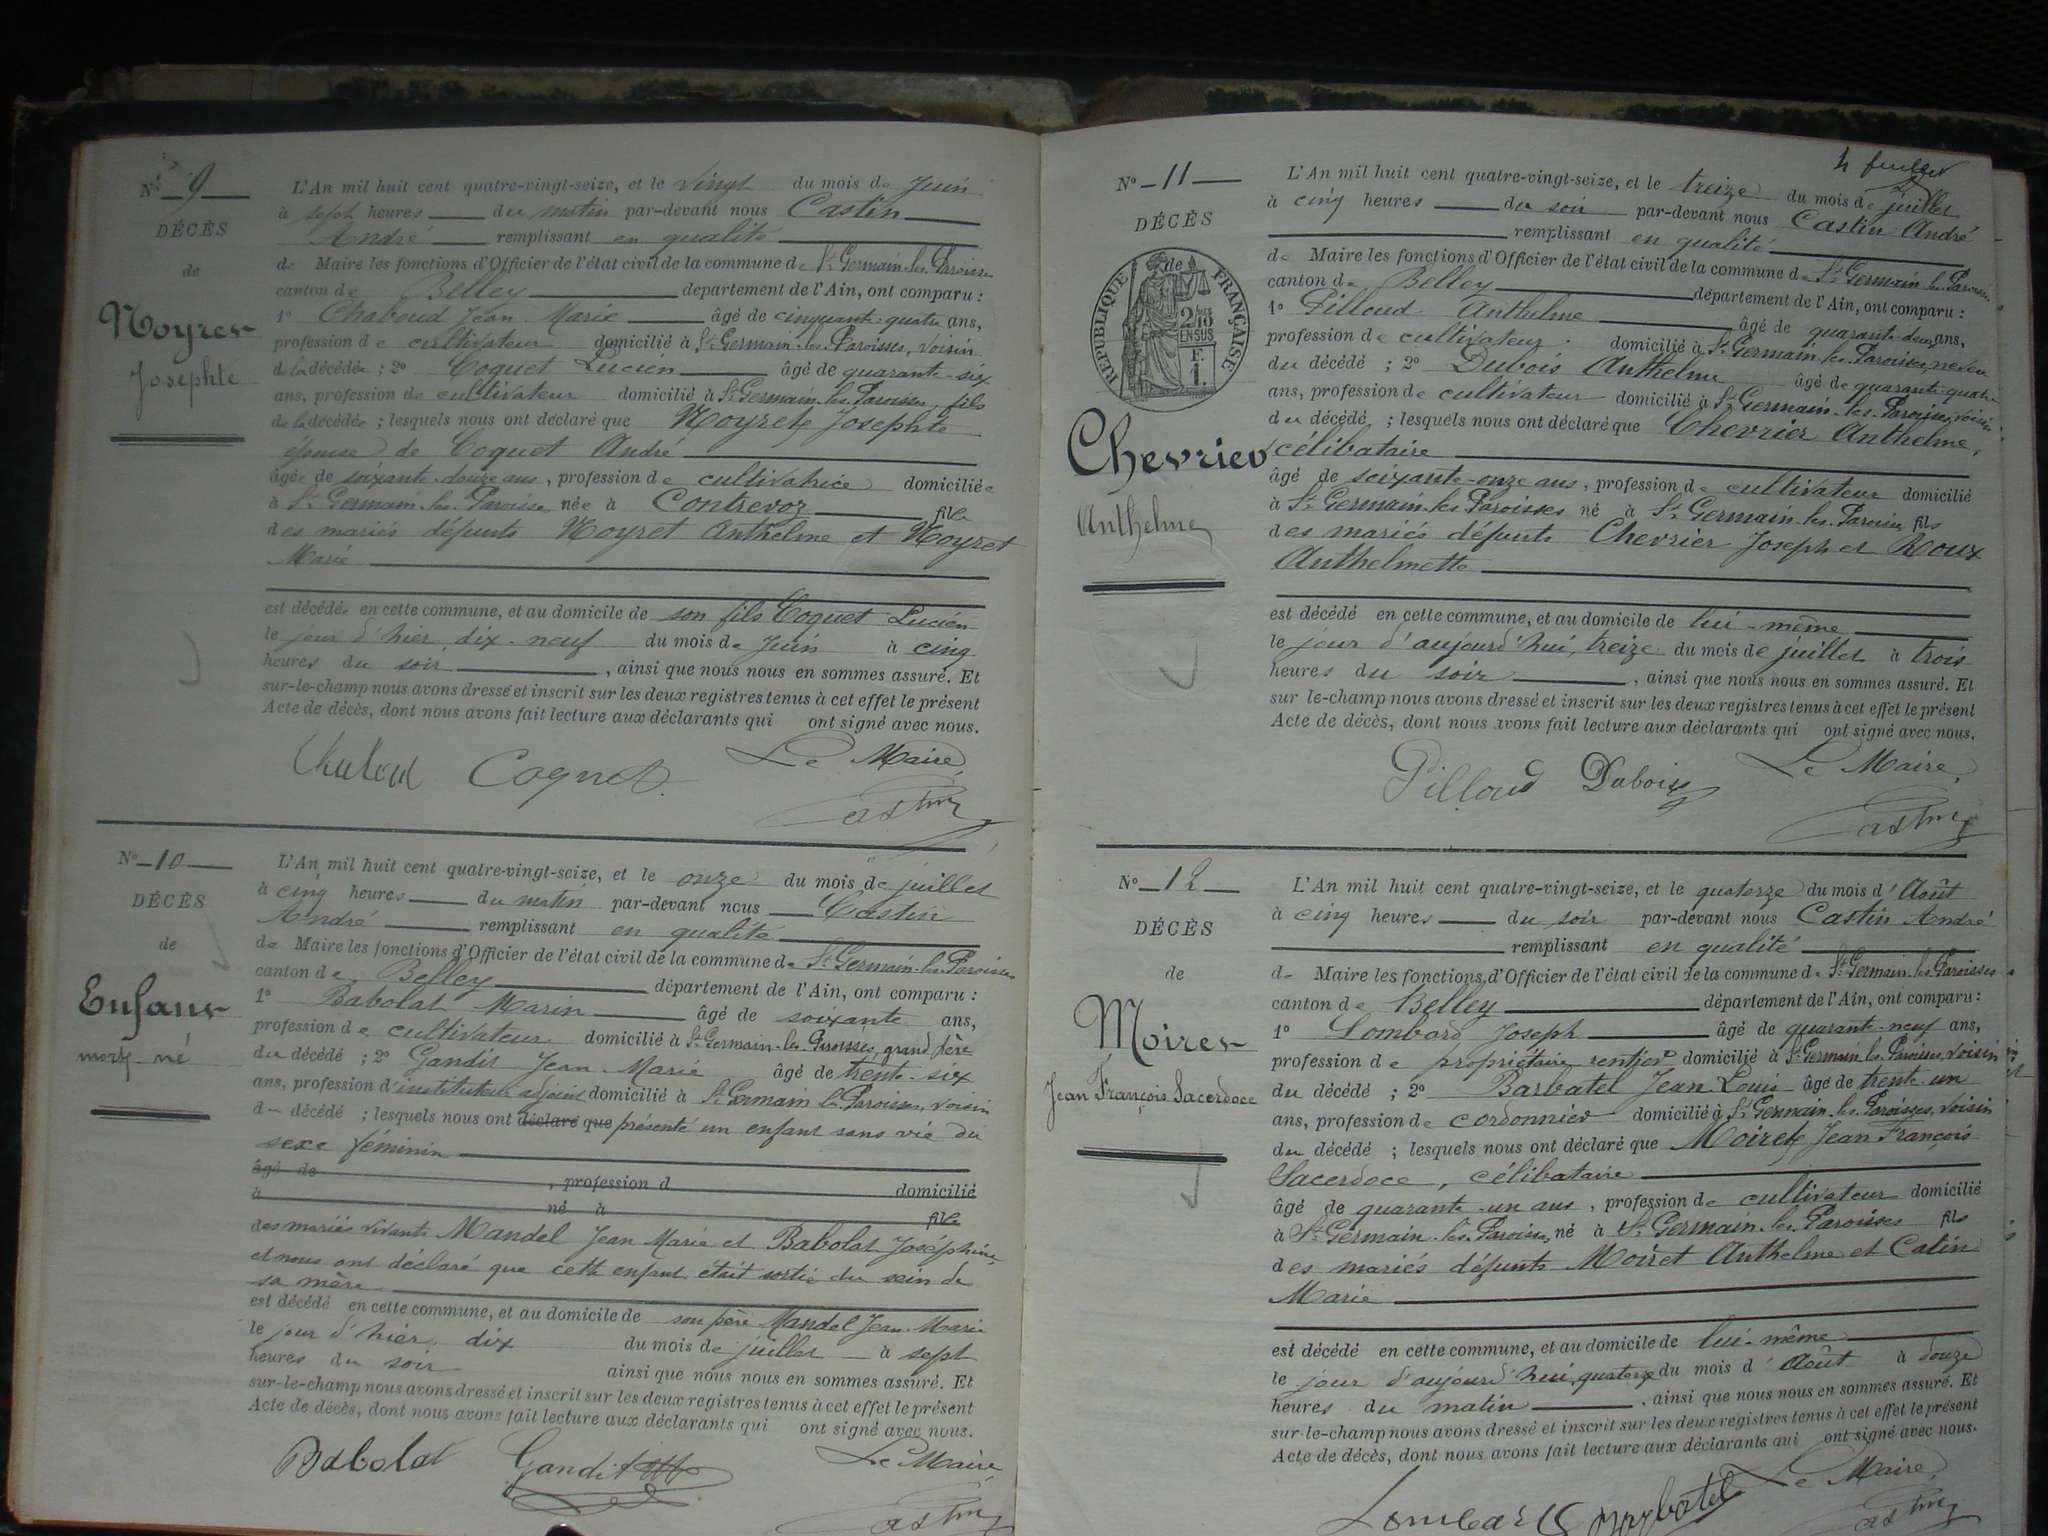 N° 9
DÉCÈS
de
Noyret
Josephte
L'An mil huit cent quatre-vingt-seize, et le vingt du mois de Juin
à sept heures du matin par-devant nous Castin
André remplissant en qualité
de Maire les fonctions d'Officier de l'état civil de la commune de St Germain-les-Paroisses
canton de Belley département de l'Ain, ont comparu :
1° Chaboud Jean Marie âgé de cinquante-quatre ans,
profession de cultivateur domicilié à St Germain-les-Paroisses, voisin
de la décédée ; 2° Coquet Lucien âgé de quarante-six
ans, profession de cultivateur domicilié à St Germain-les-Paroisses, fils
de la décédée ; lesquels nous ont déclaré que Noyret Josephte
épouse de Coquet André
âgée de soixante-douze ans, profession de cultivatrice domiciliée
à St Germain-les-Paroisses née à Contrevoz fille
des mariés défunts Noyret Anthelme et Noyret
Marie
est décédée en cette commune, et au domicile de son fils Coquet Lucien
le jour d'hier, dix-neuf du mois de Juin à cinq
heures du soir, ainsi que nous nous en sommes assuré. Et
sur-le-champ nous avons dressé et inscrit sur les deux registres tenus à cet effet le présent
Acte de décès, dont nous avons fait lecture aux déclarants qui ont signé avec nous.
Chaboud Coquet Le Maire,
Castin
N° 10
DÉCÈS
de
Enfant
mort-né
L'An mil huit cent quatre-vingt-seize, et le onze du mois de juillet
à cinq heures du matin par-devant nous Castin
André remplissant en qualité
de Maire les fonctions d'Officier de l'état civil de la commune de St Germain-les-Paroisses
canton de Belley département de l'Ain, ont comparu :
1° Babolat Marin âgé de soixante ans,
profession de cultivateur domicilié à St Germain-les-Paroisses, grand père
du décédé ; 2° Gandit Jean Marie âgé de trente-six
ans, profession d'instituteur adjoint domicilié à St Germain-les-Paroisses, voisin
d décédé ; lesquels nous ont déclaré que présenté un enfant sans vie du
sexe féminin
âgé de , profession d domicilié
à né à fils
des mariés vivants Mandel Jean Marie et Babolat Joséphine,
et nous ont déclaré que cette enfant était sortie du sein de
sa mère
est décédé en cette commune, et au domicile de son père Mandel Jean-Marie
le jour d'hier, dix du mois de juillet à sept
heures du soir ainsi que nous nous en sommes assuré. Et
sur-le-champ nous avons dressé et inscrit sur les deux registres tenus à cet effet le présent
Acte de décès, dont nous avons fait lecture aux déclarants qui ont signé avec nous.
Babolat Gandit Le Maire,
Castin
N° 11
DÉCÈS
de
RÉPUBLIQUE FRANÇAISE
2/10
EN SUS
F.
1.
Chevrier
Anthelme
L'An mil huit cent quatre-vingt-seize, et le treize du mois de juillet
à cinq heures du soir par-devant nous Castin André
remplissant en qualité
de Maire les fonctions d'Officier de l'état civil de la commune de St Germain-les-Paroisses
canton de Belley département de l'Ain, ont comparu :
1° Pilloud Anthelme âgé de quarante-deux ans,
profession de cultivateur domicilié à St Germain-les-Paroisses, neveu
du décédé ; 2° Dubois Anthelme âgé de quarante-quatre
ans, profession de cultivateur domicilié à St Germain-les-Paroisses, voisin
du décédé ; lesquels nous ont déclaré que Chevrier Anthelme,
célibataire
âgé de soixante-onze ans, profession de cultivateur domicilié
à St Germain-les-Paroisses né à St Germain-les-Paroisses, fils
des mariés défunts Chevrier Joseph et Roux
Anthelmette
est décédé en cette commune, et au domicile de lui-même
le jour d'aujourd'hui, treize du mois de juillet à trois
heures du soir, ainsi que nous nous en sommes assuré. Et
sur-le-champ nous avons dressé et inscrit sur les deux registres tenus à cet effet le présent
Acte de décès, dont nous avons fait lecture aux déclarants qui ont signé avec nous.
Pilloud Dubois Le Maire,
Castin
N° 12
DÉCÈS
de
Moiret
Jean François Sacerdoce
L'An mil huit cent quatre-vingt-seize, et le quatorze du mois d'Août
à cinq heures du soir par-devant nous Castin André
remplissant en qualité
de Maire les fonctions d'Officier de l'état civil de la commune de St Germain-les-Paroisses
canton de Belley département de l'Ain, ont comparu :
1° Lombard Joseph âgé de quarante-neuf ans,
profession de propriétaire rentier domicilié à St Germain-les-Paroisses, voisin
du décédé ; 2° Barbatel Jean Louis âgé de trente-un
ans, profession de cordonnier domicilié à St Germain-les-Paroisses, voisin
du décédé ; lesquels nous ont déclaré que Moiret Jean François
Sacerdoce, célibataire
âgé de quarante-un ans, profession de cultivateur domicilié
à St Germain-les-Paroisses, né à St Germain-les-Paroisses fils
des mariés défunts Moiret Anthelme et Catin
Marie
est décédé en cette commune, et au domicile de lui-même
le jour d'aujourd'hui, quatorze du mois d'Août à douze
heures du matin, ainsi que nous nous en sommes assuré. Et
sur-le-champ nous avons dressé et inscrit sur les deux registres tenus à cet effet le présent
Acte de décès, dont nous avons fait lecture aux déclarants qui ont signé avec nous.
Lombard Barbatel Le Maire,
Castin